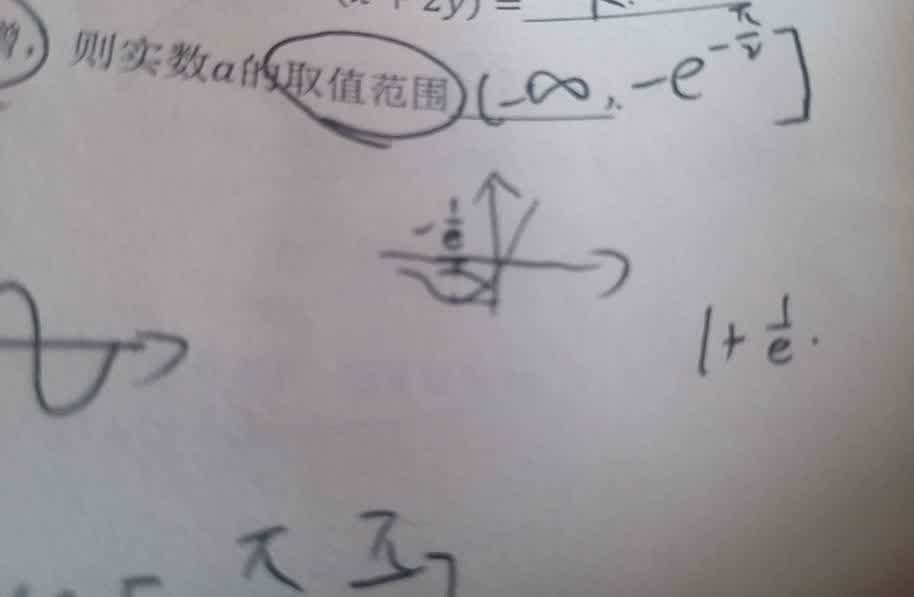 + 2y) =
增, 则实数a的取值范围 (-∞, -e^{-\frac{π}{2}}]
-\frac{1}{e}
1+\frac{1}{e}.
π